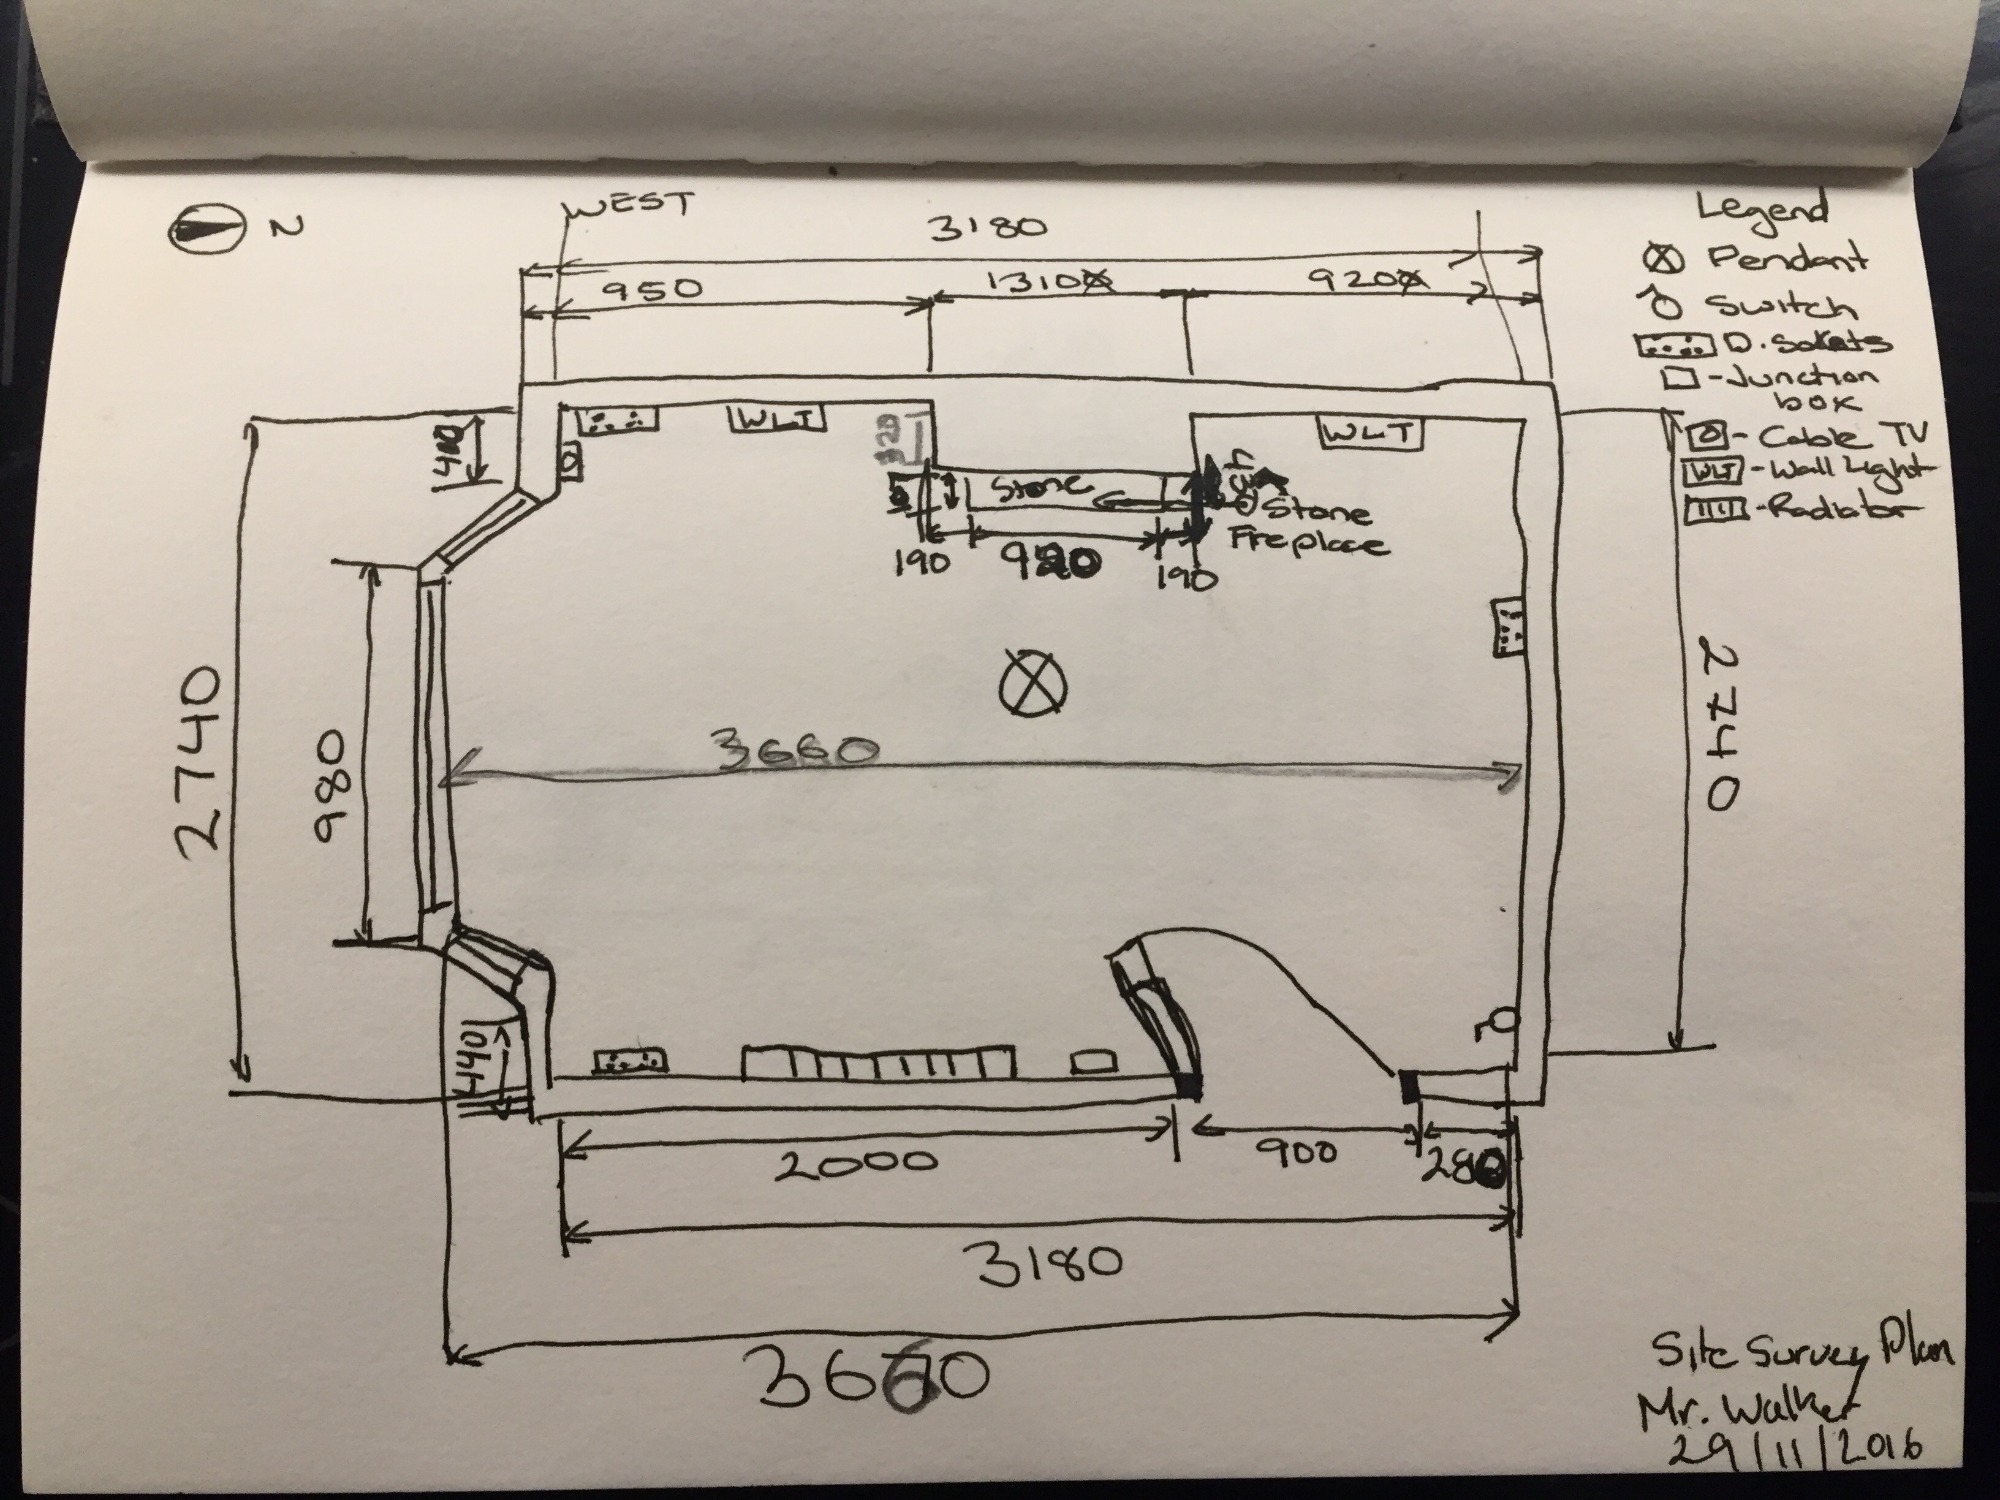 N
WEST
3180
950
1310
920
400
320
WLT
WLT
Stone
Stone
Fireplace
190
190
2740
980
3660
2740
440
2000
900
280
3180
3660
Legend
Pendant
Switch
D. Sokets
-Junction
box
- Cable TV
WLT - Wall Light
- Radiator
Site Survey Plan
Mr. Walker
29/11/2016